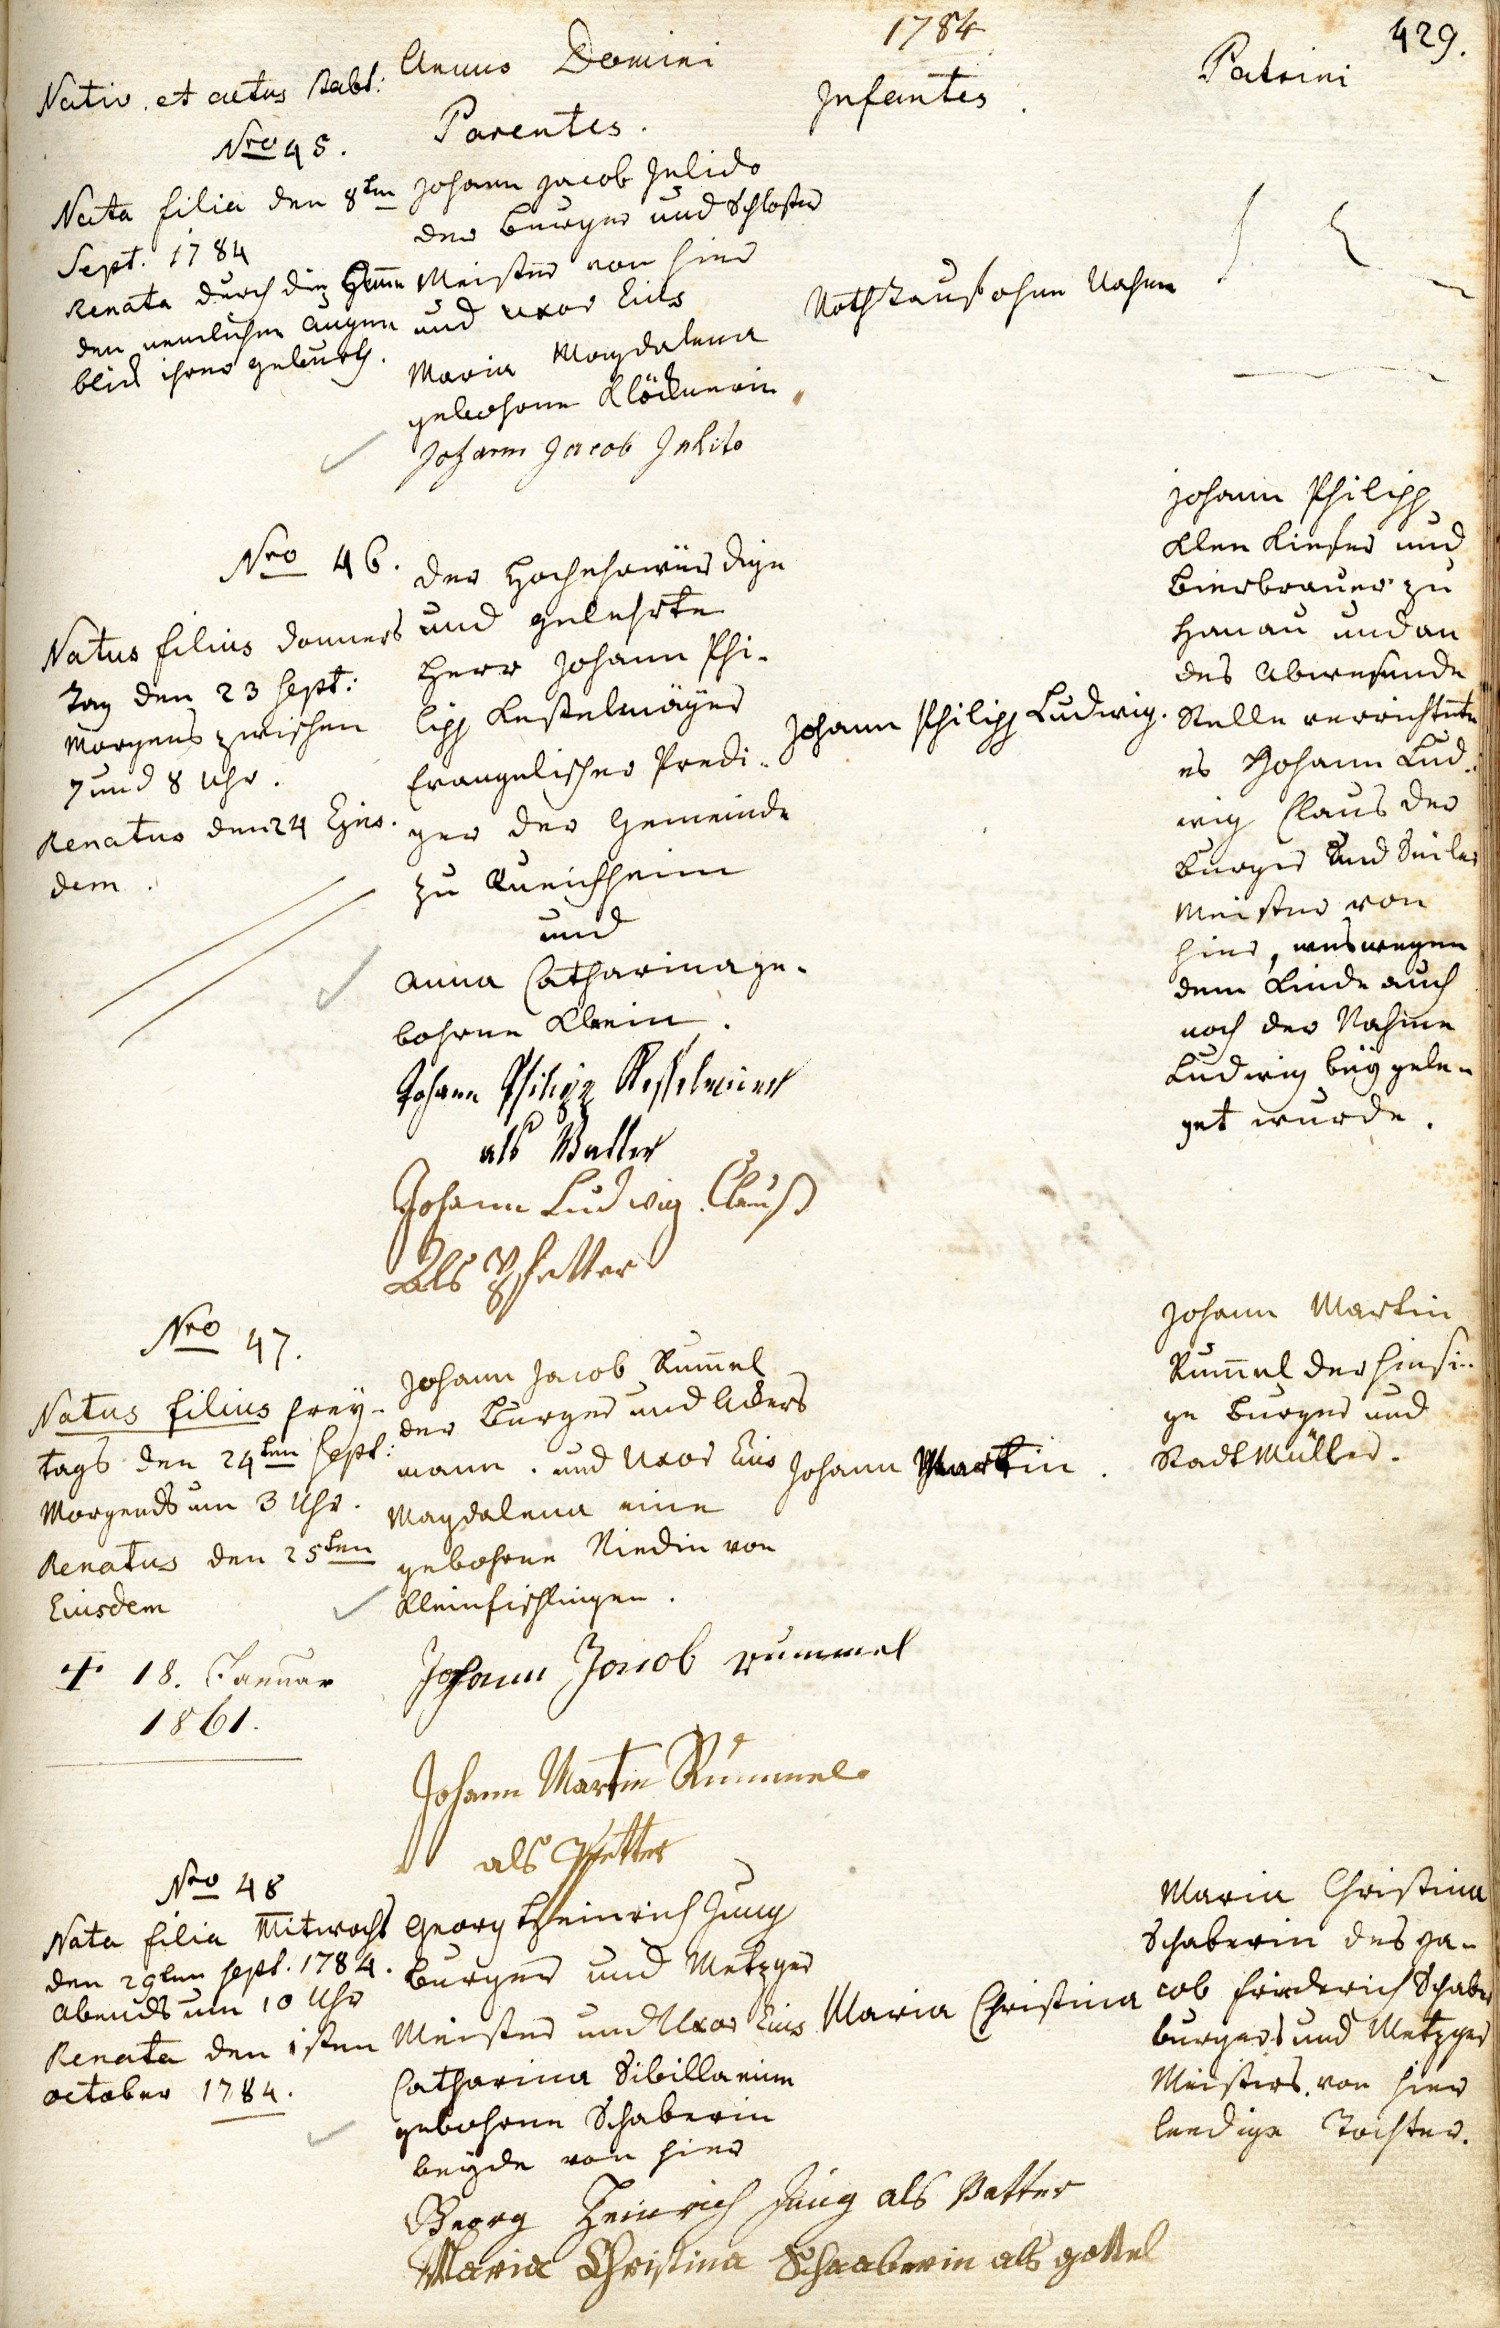 429.
Anno Domini 1784
Nativ. et actus Babt: Parentes. Infantes Patrini
Nro 45.
Nata filia den 8ten
Sept. 1784
Renata durch die
den nemlichen Augen
blick ihrer geburth.
Johann Jacob Julido
der Burger und Schloßer
Meister von hier
und Uxor Eius
Maria Magdalena
gebohrne Klöcknerin
Johann Jacob
Nothtauf ohne Nahme
Nro 46.
Natus filius Donners
tag den 23 Sept:
Morgens zwischen
7 und 8 Uhr.
Renatus den 24 Ejus
dem.
der Hochehrwürdige
und gelehrte
Herr Johann Phi-
lipp Kesselmäyer
Evangelischer Predi-
ger der Gemeinde
zu Rueichheim
und
Anna Catharina ge-
bohrne Klein.
Johann Philipp Kesselmeier
als Vatter
Johann Ludwig Clauß
Als Pfetter
Johann Philipp Ludwig.
Johann Philipp
Klein Kiefer und
Bierbrauer zu
Hanau und an
des Abwesende
Stelle verrichtete
es Johann Lud-
wig Claus der
Burger und Seiler
Meister von
hier, weswegen
dem Kinde auch
noch der Nahme
Ludwig beygele-
get wurde.
Nro 47.
Natus filius frey-
tags den 24ten Sept:
Morgends um 3 Uhr.
Renatus den 25ten
Eiusdem
† 18. Januar
1861.
Johann Jacob Rum̄el
der Burger und Ackers
mann. und Uxor Eius
Magdalena eine
gebohrne Niedin von
Kleinfischlingen.
Johann Jacob Rummel
Johann Martin Rummel
als Pfetter
Johann Martin.
Johann Martin
Rum̄el der hiesi-
ge Burger und
Stadt Müller.
Nro 48
Nata filia Mitwochs
den 29ten Sept. 1784.
Abends um 10 Uhr
Renata den 1sten
October 1784.
Georg Heinrich Jung
Burger und Metzger
Meister und Uxor Eius
Catharina Sibilla eine
gebohrne Schaberin
beyde von hier
Georg Heinrich Jung als Vatter
Maria Christina Schaaberin als gottel
Maria Christina
Maria Christina
Schaberin des Ja-
cob Friederich Schaber
Burgers und Metzger
Meisters von hier
leedige Tochter.